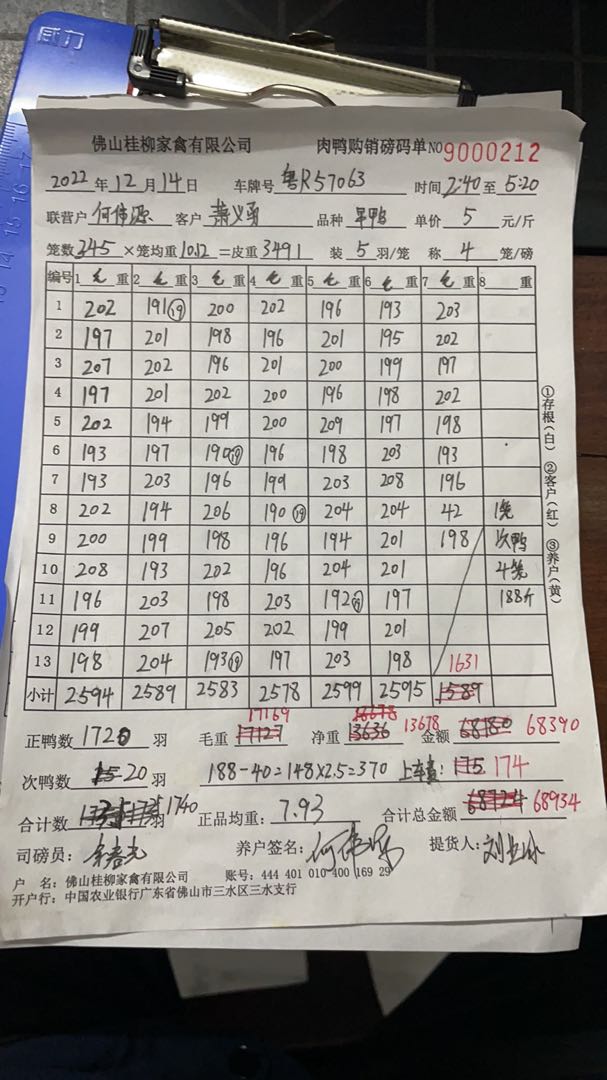 威力
佛山桂柳家禽有限公司 肉鸭购销磅码单 NO 9000212
2022 年 12 月 14 日 车牌号 粤R57063 时间 2:40 至 5:20
联营户 何伟源 客户 萧义勇 品种 旱鸭 单价 5 元/斤
笼数 345 ×笼均重 10.12 =皮重 3491 装 5 羽/笼 称 4 笼/磅
编号 1 毛 重 2 毛 重 3 毛 重 4 毛 重 5 毛 重 6 毛 重 7 毛 重 8 重
1 202 191 (19) 200 202 196 193 203
2 197 201 198 196 201 195 202
3 207 202 196 201 200 199 197
4 197 201 202 200 196 198 202
5 202 194 199 200 209 197 198
6 193 197 190 (19) 196 198 203 193
7 193 203 196 199 203 208 196
8 202 194 206 190 (19) 204 204 42 1笼
9 200 199 198 196 194 201 198 次鸭
10 208 193 202 196 204 201 4笼
11 196 203 198 203 192 (19) 197 188斤
12 199 207 205 202 199 201
13 198 204 193 (19) 197 203 198 1631
小计 2594 2589 2583 2578 2599 2595 1589
17169 13678
正鸭数 1720 羽 毛重 17127 净重 13636 13678 金额 68180 68390
次鸭数 15 20 羽 188-40=148×2.5=370 上车费: 175 174
合计数 1740 羽 正品均重: 7.93 合计总金额 68934
司磅员: 养户签名: 何伟源 提货人:
户 名: 佛山桂柳家禽有限公司 账号: 444 401 010 400 169 29
开户行: 中国农业银行广东省佛山市三水区三水支行
①存根(白) ②客户(红) ③养户(黄)